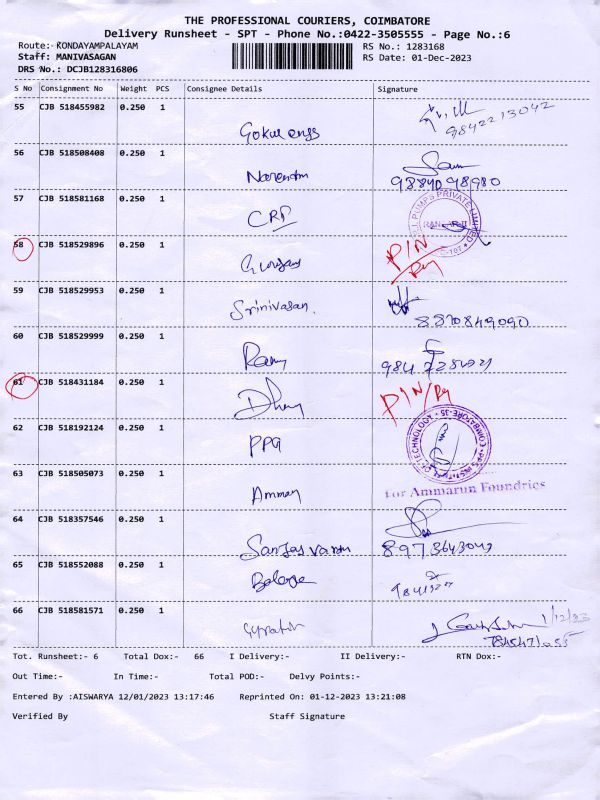 THE PROFESSIONAL COURIERS, COIMBATORE
Delivery Runsheet - SPT - Phone No.:0422-3505555 - Page No.:6
Route: KONDAYAMPALAYAM RS No.: 1283168
Staff: MANIVASAGAN RS Date: 01-Dec-2023
DRS No.: DCJB128316806
S No Consignment No Weight PCS Consignee Details Signature
55 CJB 518455982 0.250 1
Gokul engg 9842213042
56 CJB 518508408 0.250 1
Narendran 9884098980
57 CJB 518581168 0.250 1
CRP PUMPS PRIVATE LIMITED
58 CJB 518529896 0.250 1 P/N
59 CJB 518529953 0.250 1
Srinivasan. 8870849090
60 CJB 518529999 0.250 1
Ramy
61 CJB 518431184 0.250 1 P/N
62 CJB 518192124 0.250 1
PPG OF TECHNOLOGY COIMBATORE-35
63 CJB 518505073 0.250 1
Amman For Ammarun Foundries
64 CJB 518357546 0.250 1
8973643049
65 CJB 518552088 0.250 1
66 CJB 518581571 0.250 1
1/12/23
Tot. Runsheet:- 6 Total Dox:- 66 I Delivery:- II Delivery:- RTN Dox:-
Out Time:- In Time:- Total POD:- Delvy Points:-
Entered By :AISWARYA 12/01/2023 13:17:46 Reprinted On: 01-12-2023 13:21:08
Verified By Staff Signature